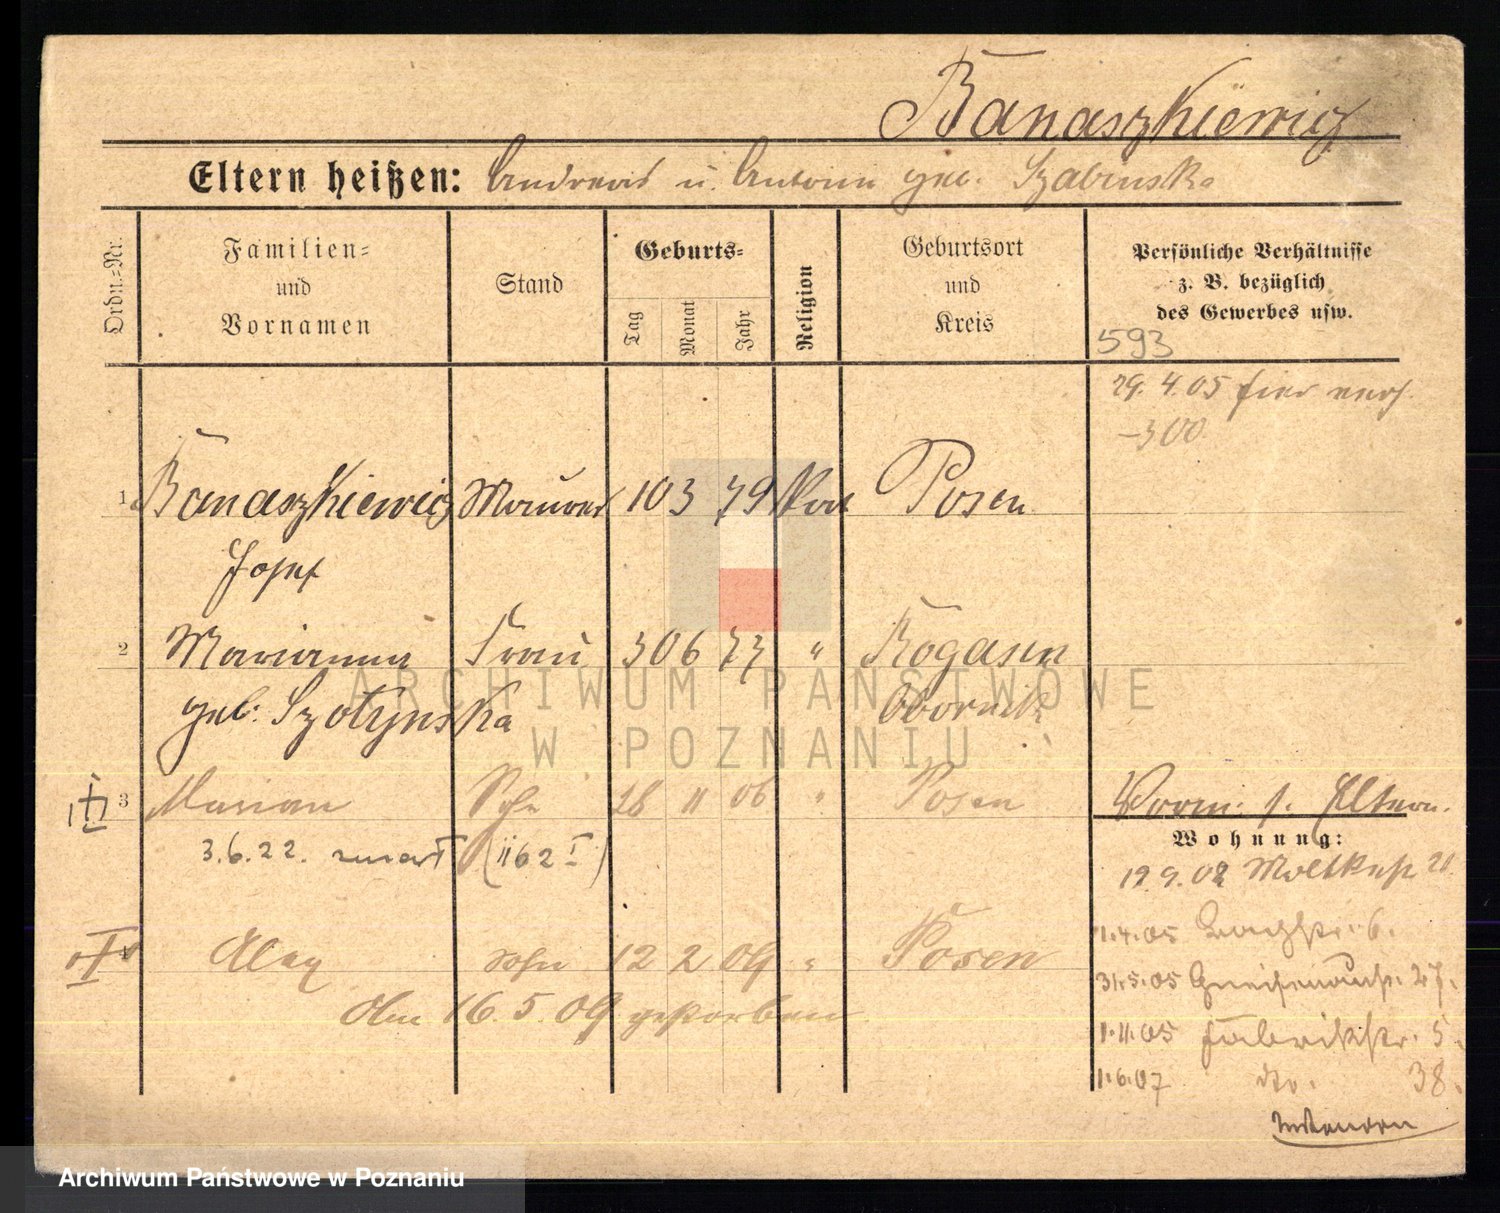 Banaszkiewicz
Eltern heißen: Andreas u. Antonie geb. Szabinska
Ordn.=Nr.
Familien=
und
Vornamen
Stand
Geburts=
Tag
Monat
Jahr
Religion
Geburtsort
und
Kreis
Persönliche Verhältnisse
z. B. bezüglich
des Gewerbes usw.
593
29. 4. 05 hier
–300
1 Banaszkiewicz Maurer 10 3 79 Kat Posen
Josef
2 Marianna Frau 30 6 77 " Rogasen
geb. Szotynska Obornik
3 Marian Sohn 28 11 06 " Posen
Vorm. s. Eltern.
3.6.22. zmarł (1162 I)
Wohnung:
19.9.02 Moltkestr 21
Alex Sohn 12 2 09 " Posen
1.4.05 6.
Am 16. 5. 09 gestorben
31.5.05 Gneisenaustr. 27.
1.11.05 Fabrikstr. 5.
1.6.07 dto. 38.
ARCHIWUM PAŃSTWOWE
W POZNANIU
Archiwum Państwowe w Poznaniu